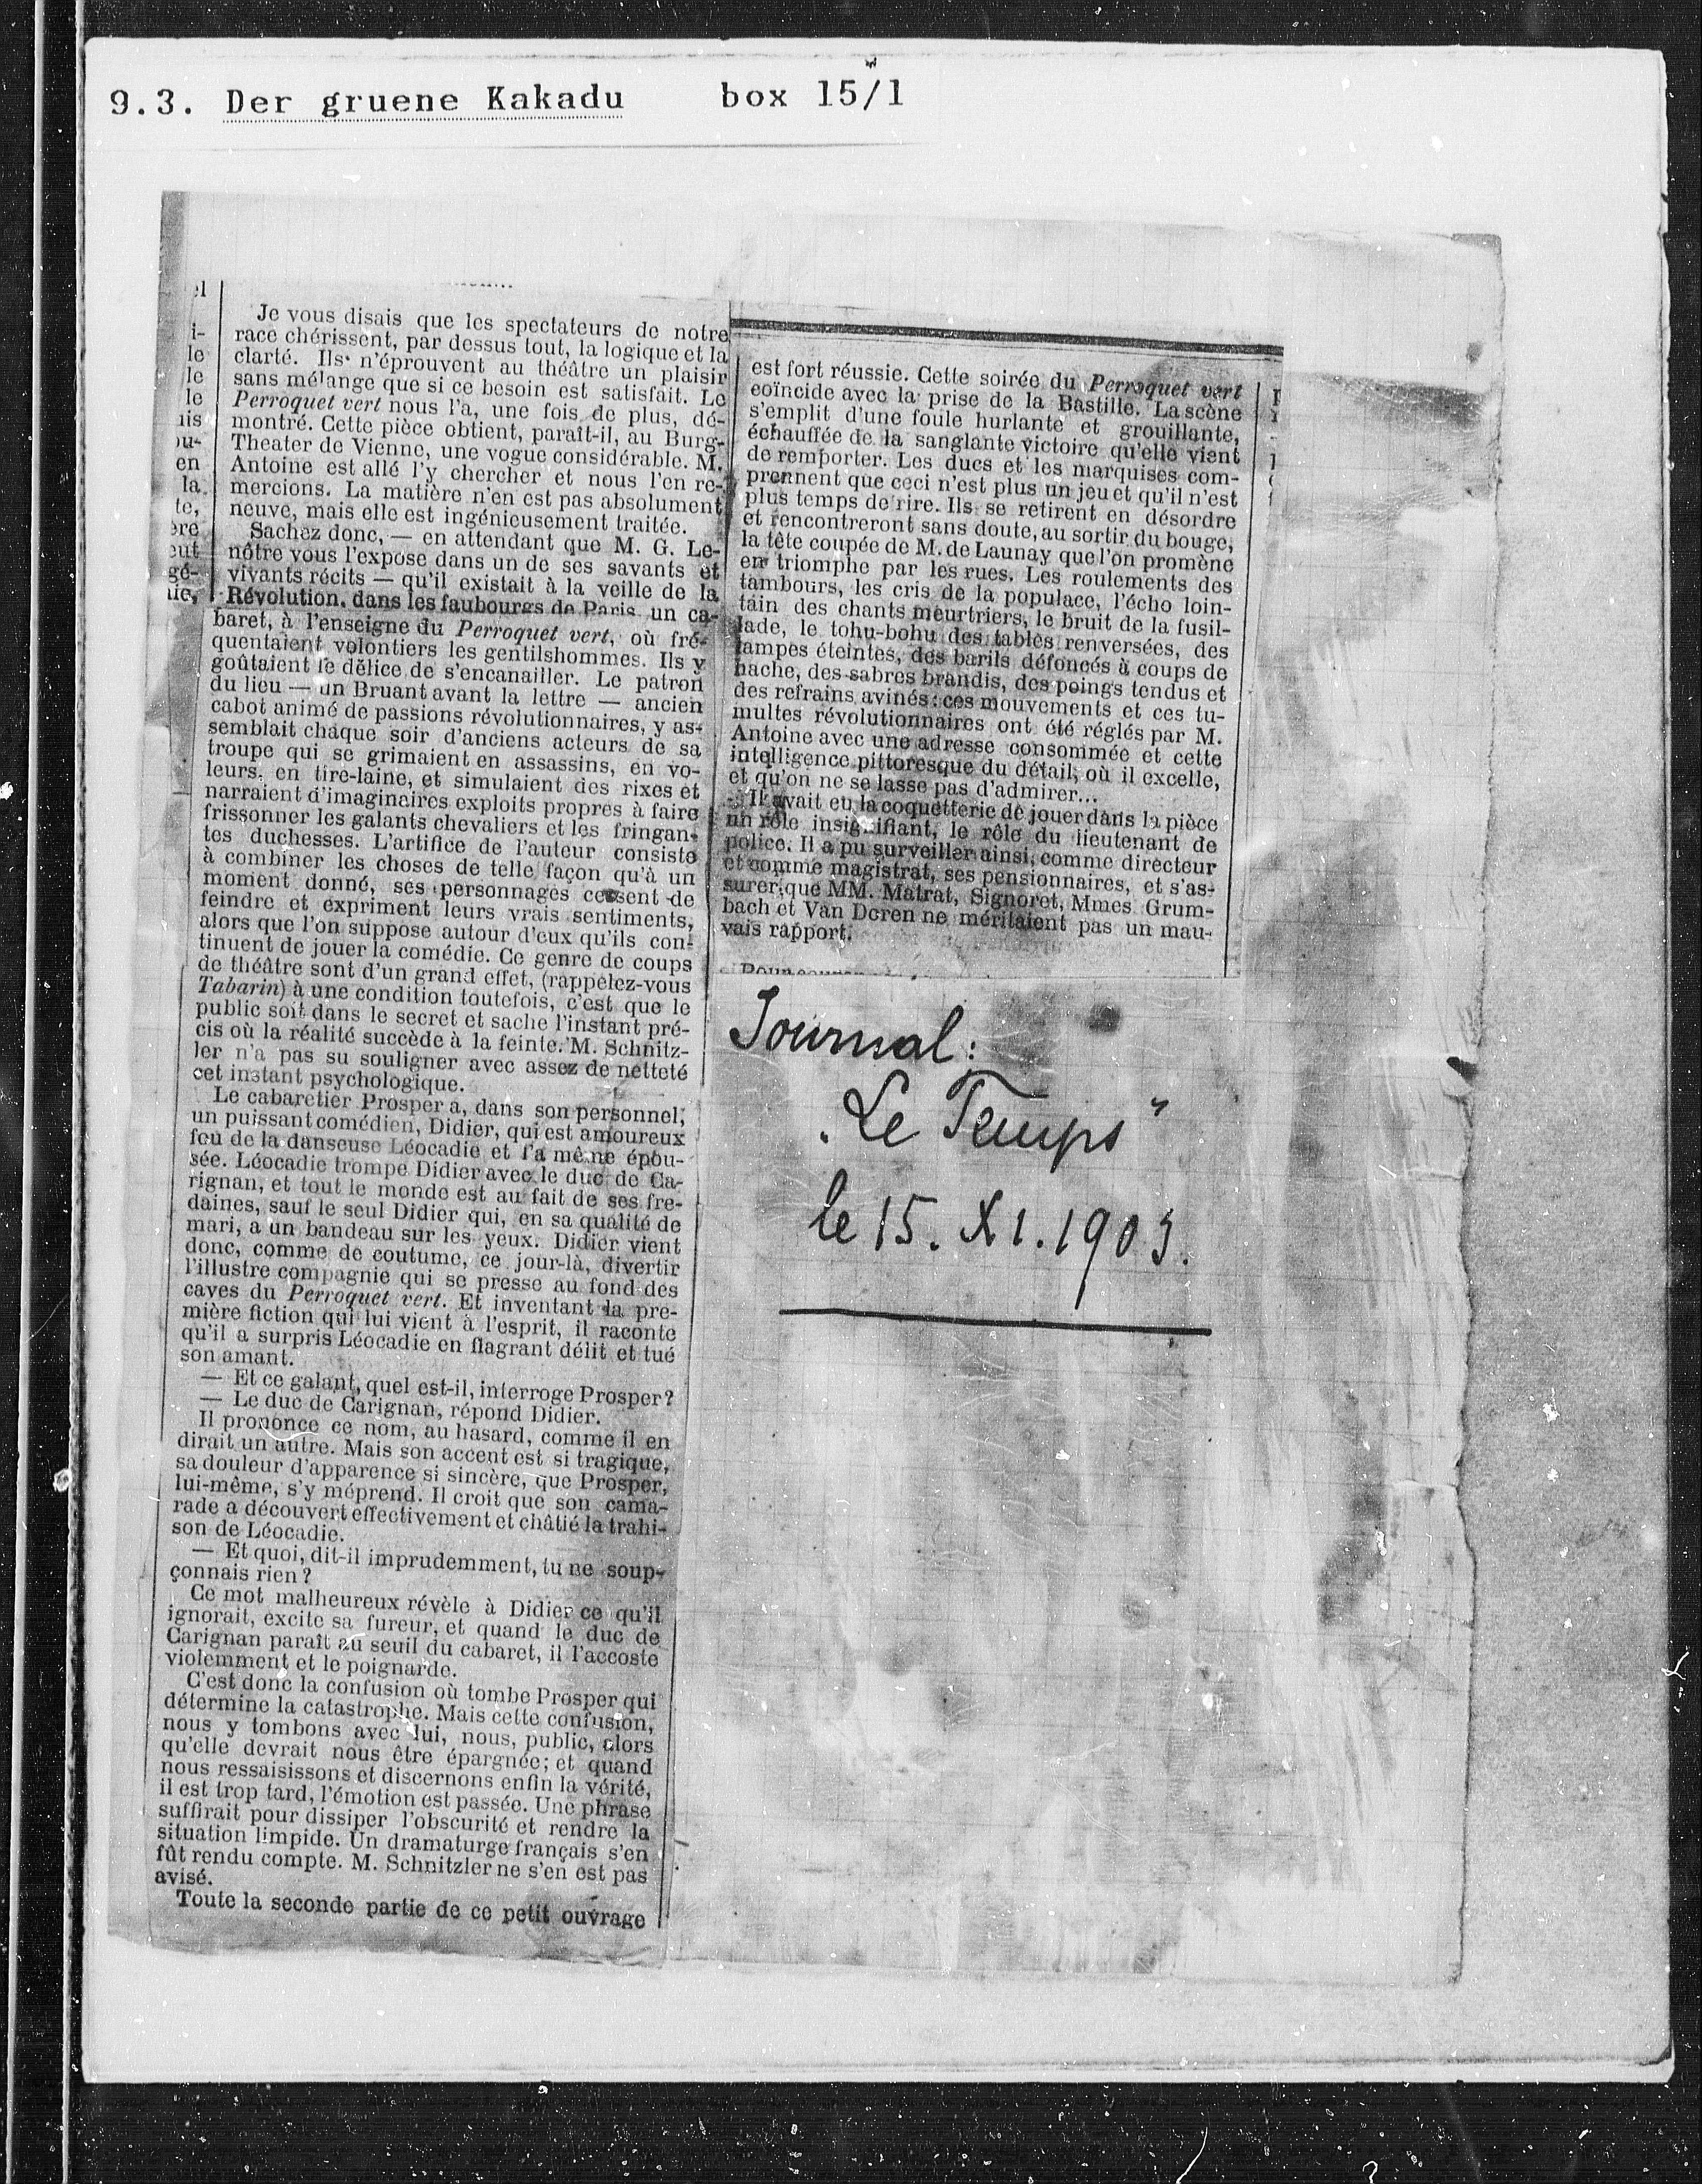 9.3. Der gruene Kakadu box 15/1
Je vous disais que les spectateurs de notre
race chérissent, par dessus tout, la logique et la
clarté. Ils n'éprouvent au théâtre un plaisir
sans mélange que si ce besoin est satisfait. Le
Perroquet vert nous l'a, une fois de plus, dé-
montré. Cette pièce obtient, paraît-il, au Burg-
Theater de Vienne, une vogue considérable. M.
Antoine est allé l'y chercher et nous l'en re-
mercions. La matière n'en est pas absolument
neuve, mais elle est ingénieusement traitée.
Sachez donc, — en attendant que M. G. Le-
nôtre vous l'expose dans un de ses savants et
vivants récits — qu'il existait à la veille de la
Révolution, dans les faubourgs de Paris un ca-
baret, à l'enseigne du Perroquet vert, où fré-
quentaient volontiers les gentilshommes. Ils y
goûtaient le délice de s'encanailler. Le patron
du lieu — un Bruant avant la lettre — ancien
cabot animé de passions révolutionnaires, y as-
semblait chaque soir d'anciens acteurs de sa
troupe qui se grimaient en assassins, en vo-
leurs, en tire-laine, et simulaient des rixes et
narraient d'imaginaires exploits propres à faire
frissonner les galants chevaliers et les fringan-
tes duchesses. L'artifice de l'auteur consiste
à combiner les choses de telle façon qu'à un
moment donné, ses personnages cessent de
feindre et expriment leurs vrais sentiments,
alors que l'on suppose autour d'eux qu'ils con-
tinuent de jouer la comédie. Ce genre de coups
de théâtre sont d'un grand effet, (rappelez-vous
Tabarin) à une condition toutefois, c'est que le
public soit dans le secret et sache l'instant pré-
cis où la réalité succède à la feinte. M. Schnitz-
ler n'a pas su souligner avec assez de netteté
cet instant psychologique.
Le cabaretier Prosper a, dans son personnel,
un puissant comédien, Didier, qui est amoureux
fou de la danseuse Léocadie et l'a même épou-
sée. Léocadie trompe Didier avec le duc de Ca-
rignan, et tout le monde est au fait de ses fre-
daines, sauf le seul Didier qui, en sa qualité de
mari, a un bandeau sur les yeux. Didier vient
donc, comme de coutume, ce jour-là, divertir
l'illustre compagnie qui se presse au fond des
caves du Perroquet vert. Et inventant la pre-
mière fiction qui lui vient à l'esprit, il raconte
qu'il a surpris Léocadie en flagrant délit et tué
son amant.
— Et ce galant, quel est-il, interroge Prosper?
— Le duc de Carignan, répond Didier.
Il prononce ce nom, au hasard, comme il en
dirait un autre. Mais son accent est si tragique,
sa douleur d'apparence si sincère, que Prosper,
lui-même, s'y méprend. Il croit que son cama-
rade a découvert effectivement et châtié la trahi-
son de Léocadie.
— Et quoi, dit-il imprudemment, tu ne soup-
çonnais rien?
Ce mot malheureux révèle à Didier ce qu'il
ignorait, excite sa fureur, et quand le duc de
Carignan paraît au seuil du cabaret, il l'accoste
violemment et le poignarde.
C'est donc la confusion où tombe Prosper qui
détermine la catastrophe. Mais cette confusion,
nous y tombons avec lui, nous, public, alors
qu'elle devrait nous être épargnée; et quand
nous ressaisissons et discernons enfin la vérité,
il est trop tard, l'émotion est passée. Une phrase
suffirait pour dissiper l'obscurité et rendre la
situation limpide. Un dramaturge français s'en
fût rendu compte. M. Schnitzler ne s'en est pas
avisé.
Toute la seconde partie de ce petit ouvrage
est fort réussie. Cette soirée du Perroquet vert
coïncide avec la prise de la Bastille. La scène
s'emplit d'une foule hurlante et grouillante,
échauffée de la sanglante victoire qu'elle vient
de remporter. Les ducs et les marquises com-
prennent que ceci n'est plus un jeu et qu'il n'est
plus temps de rire. Ils se retirent en désordre
et rencontreront sans doute, au sortir du bouge,
la tête coupée de M. de Launay que l'on promène
en triomphe par les rues. Les roulements des
tambours, les cris de la populace, l'écho loin-
tain des chants meurtriers, le bruit de la fusil-
lade, le tohu-bohu des tables renversées, des
lampes éteintes, des barils défoncés à coups de
hache, des sabres brandis, des poings tendus et
des refrains avinés: ces mouvements et ces tu-
multes révolutionnaires ont été réglés par M.
Antoine avec une adresse consommée et cette
intelligence pittoresque du détail, où il excelle,
et qu'on ne se lasse pas d'admirer...
Il avait eu la coquetterie de jouer dans la pièce
un rôle insignifiant, le rôle du lieutenant de
police. Il a pu surveiller ainsi, comme directeur
et comme magistrat, ses pensionnaires, et s'as-
surer que MM. Matrat, Signoret, Mmes Grum-
bach et Van Doren ne méritaient pas un mau-
vais rapport.
Journal:
„Le Temps"
le 15. XI. 1903.